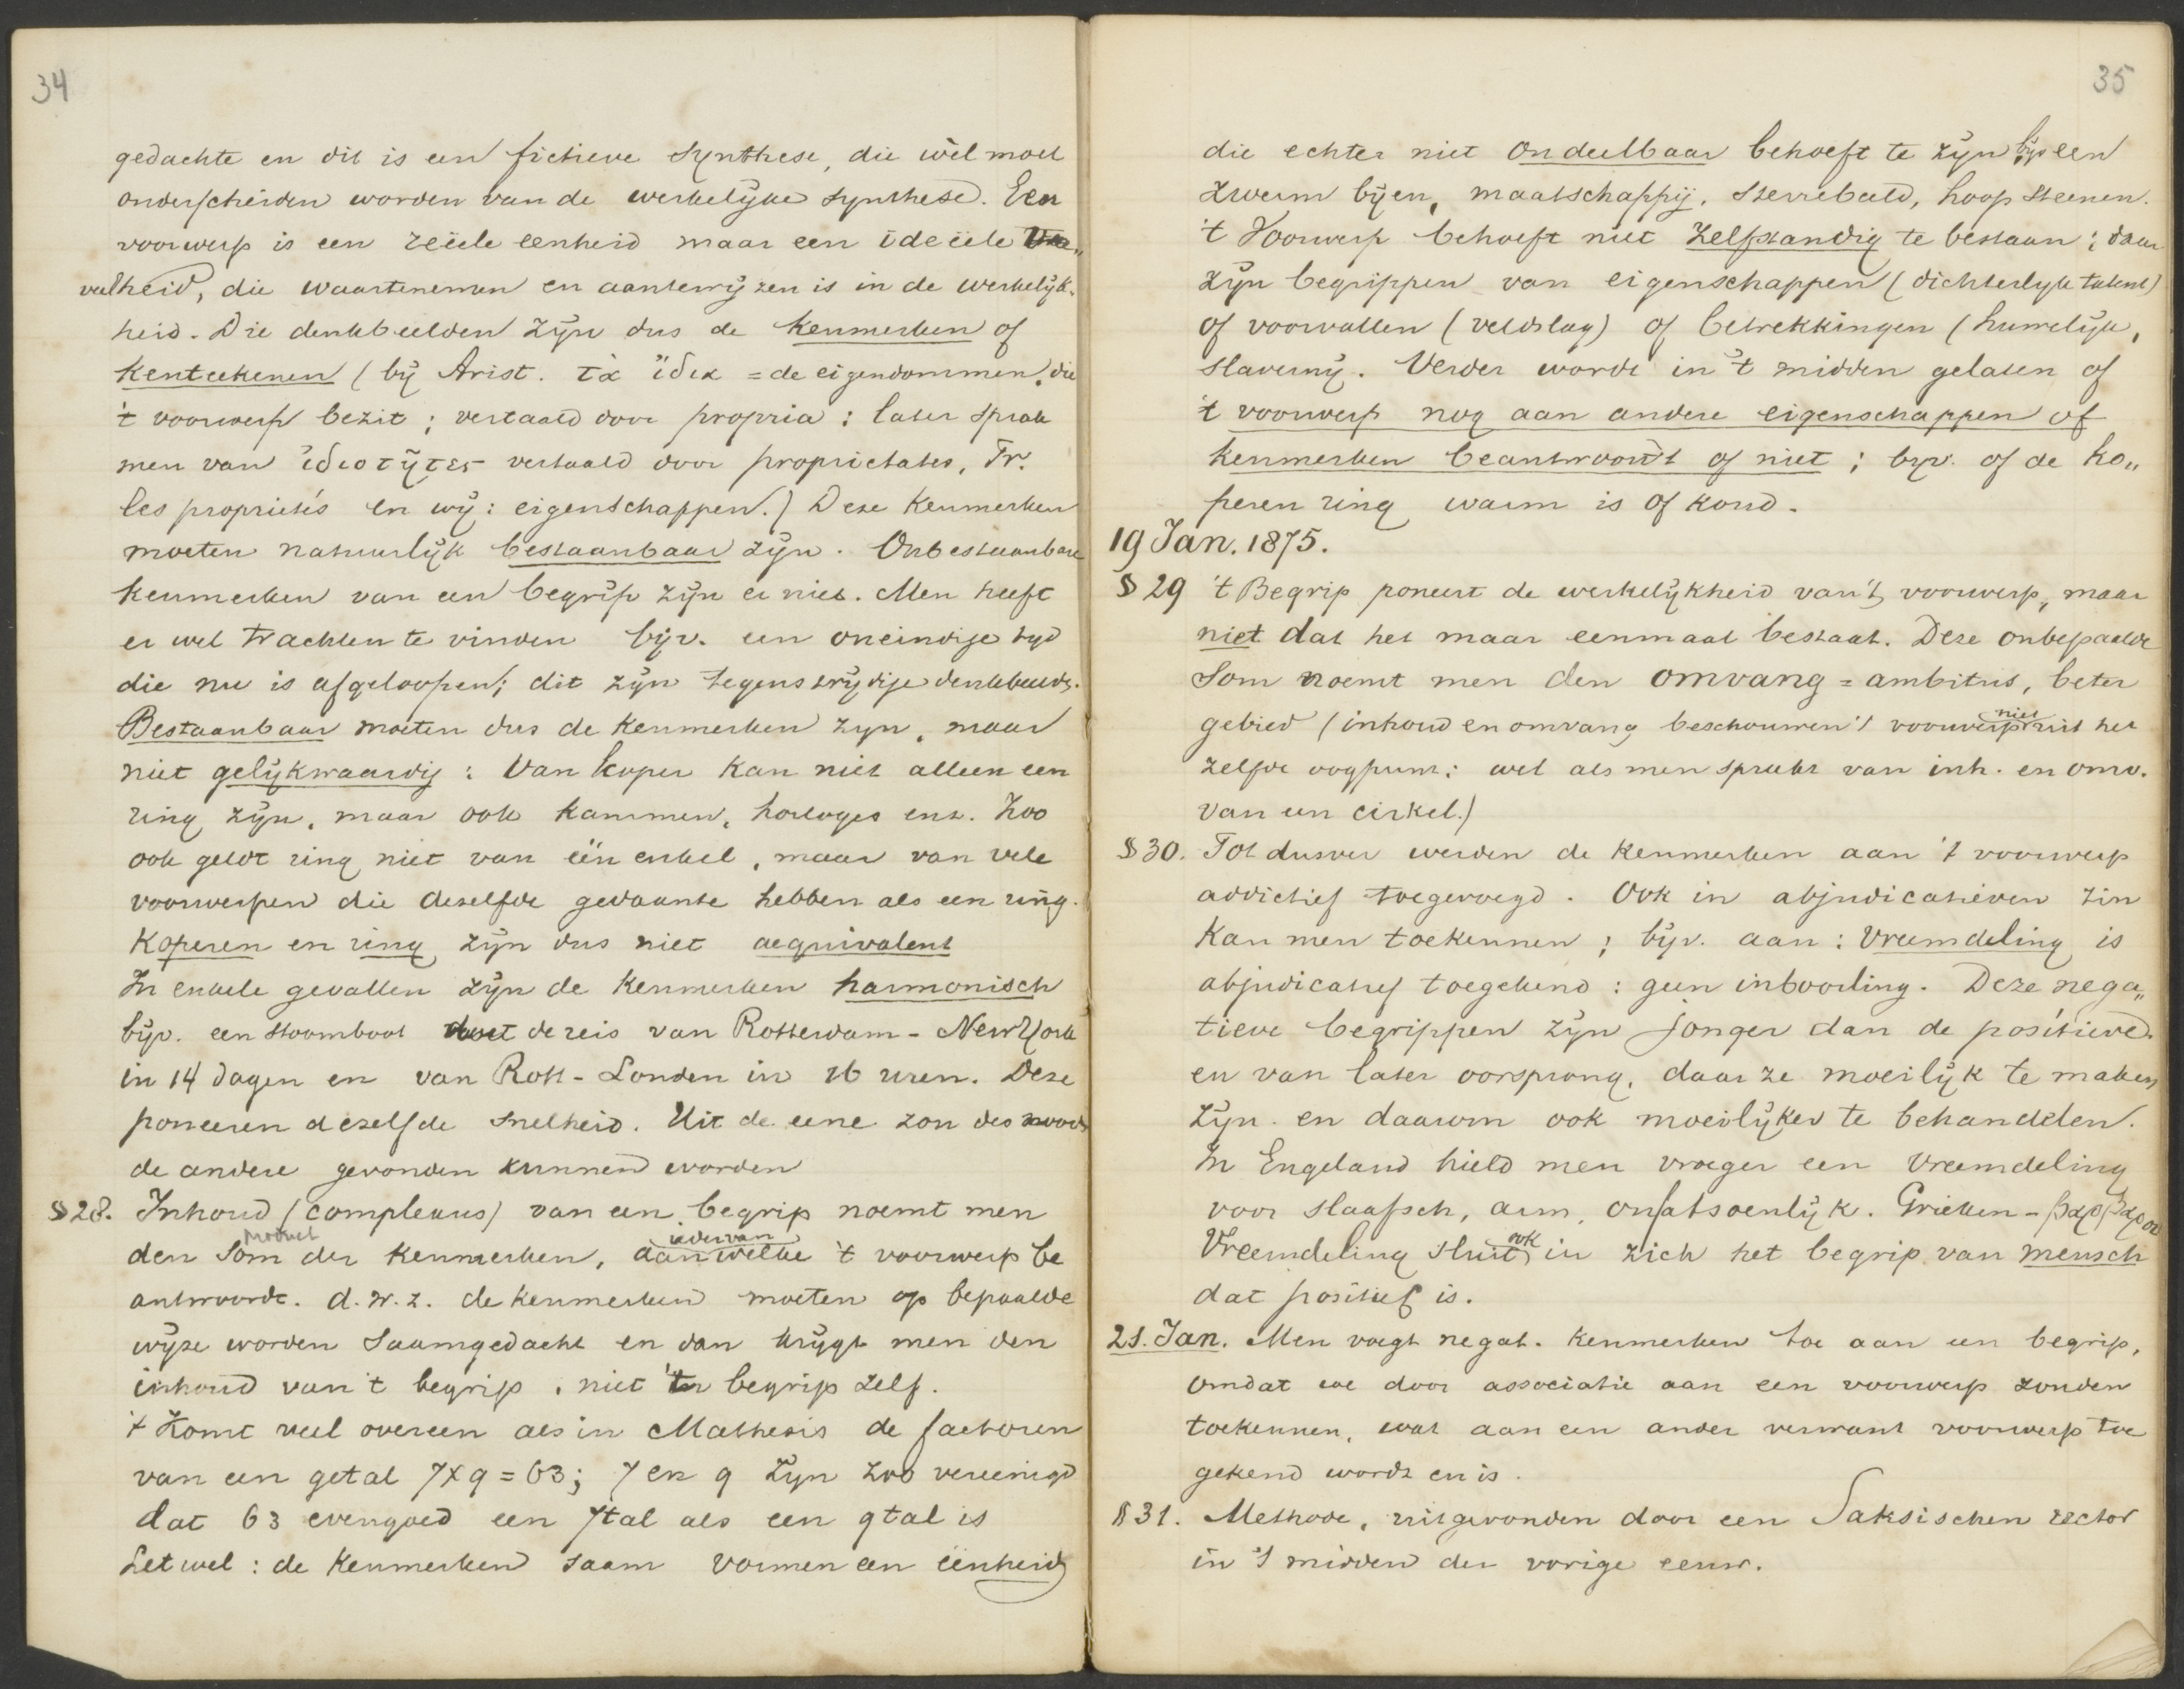 34
gedachte en dit is een fictieve synthese, die wèl moet
onderscheiden worden van de werkelijke synthese. Een
voorwerp is een reëele eenheid maar een ideëele
veelheid, die waartenemen en aantewijzen is in de werkelijk-
heid. Die denkbeelden zijn dus de kenmerken of
kenteekenen (bij Arist. τὰ ἴδια = de eigendommen, die
't voorwerp bezit; vertaald door propria: later sprak
men van ἰδιοτῆτες vertaald door proprietates, Fr.
les propriétés en wij: eigenschappen.) Deze kenmerken
moeten natuurlijk bestaanbaar zijn. Onbestaanbare
kenmerken van een begrip zijn er niet. Men heeft
er wel trachten te vinden bijv. een oneindige tijd
die nu is afgeloopen; dit zijn tegenstrijdige denkbeeld.
Bestaanbaar moeten dus de kenmerken zijn, maar
niet gelijkwaardig: Van koper kan niet alleen een
ring zijn, maar ook kammen, horloges enz. Zoo
ook geldt ring niet van één enkel, maar van vele
voorwerpen die dezelfde gedaante hebben als een ring.
Koperen en ring zijn dus niet aequivalent
In enkele gevallen zijn de kenmerken harmonisch
bijv. een stoomboot doet de reis van Rotterdam - New York
in 14 dagen en van Rott - Londen in 16 uren. Deze
poneeren dezelfde snelheid. Uit de eene zou des noods
de andere gevonden kunnen worden
§ 28. Inhoud (complexus) van een begrip noemt men
product
ieder van
den Som der kenmerken, aan welke 't voorwerp be
antwoordt. d.w.z. de kenmerken moeten op bepaalde
wijze worden saamgedacht en dan krijgt men den
inhoud van 't begrip, niet 't begrip zelf.
't Komt veel overeen als in Mathesis de factoren
van een getal 7x9=63; 7 en 9 zijn zoo vereenigd
dat 63 evengoed een 7tal als een 9tal is
Let wel: de kenmerken saam vormen een eenheid
35
die echter niet ondeelbaar behoeft te zijn bijv een
zwerm bijen, maatschappij, sterrebeeld, hoop steenen.
't Voorwerp behoeft niet zelfstandig te bestaan; daar
zijn begrippen van eigenschappen (dichterlijk talent)
of voorvallen (veldslag) of betrekkingen (huwelijk,
slavernij. Verder wordt in 't midden gelaten of
't voorwerp nog aan andere eigenschappen of
kenmerken beantwoordt of niet; bijv. of de ko„
peren ring warm is of koud.
19 Jan. 1875.
§ 29 't Begrip poneert de werkelijkheid van 't voorwerp, maar
niet dat het maar eenmaal bestaat. Deze onbepaalde
Som noemt men den omvang = ambitus, beter
gebied (inhoud en omvang beschouwen 't voorwerp niet uit het
zelfde oogpunt: wel als men spreekt van inh. en omv.
van een cirkel.)
§ 30. Tot dusver werden de kenmerken aan 't voorwerp
addictief toegevoegd. Ook in abjudicatieven zin
kan men toekennen; bijv. aan: Vreemdeling is
abjudicatief toegekend: geen inboorling. Deze nega„
tieve begrippen zijn jonger dan de positieve
en van later oorsprong, daar ze moeilijk te maken
zijn en daarom ook moeilijker te behandelen.
In Engeland hield men vroeger een vreemdeling
voor slaafsch, arm, onfatsoenlijk. Grieken - βαρβαροι
Vreemdeling sluit ook in zich het begrip van mensch
dat positief is.
21. Jan. Men voegt negat. kenmerken toe aan een begrip,
omdat we door associatie aan een voorwerp zouden
toekennen, wat aan een ander verwant voorwerp toe
gekend wordt en is.
§ 31. Methode, uitgevonden door een Saksischen rector
in 't midden der vorige eeuw.